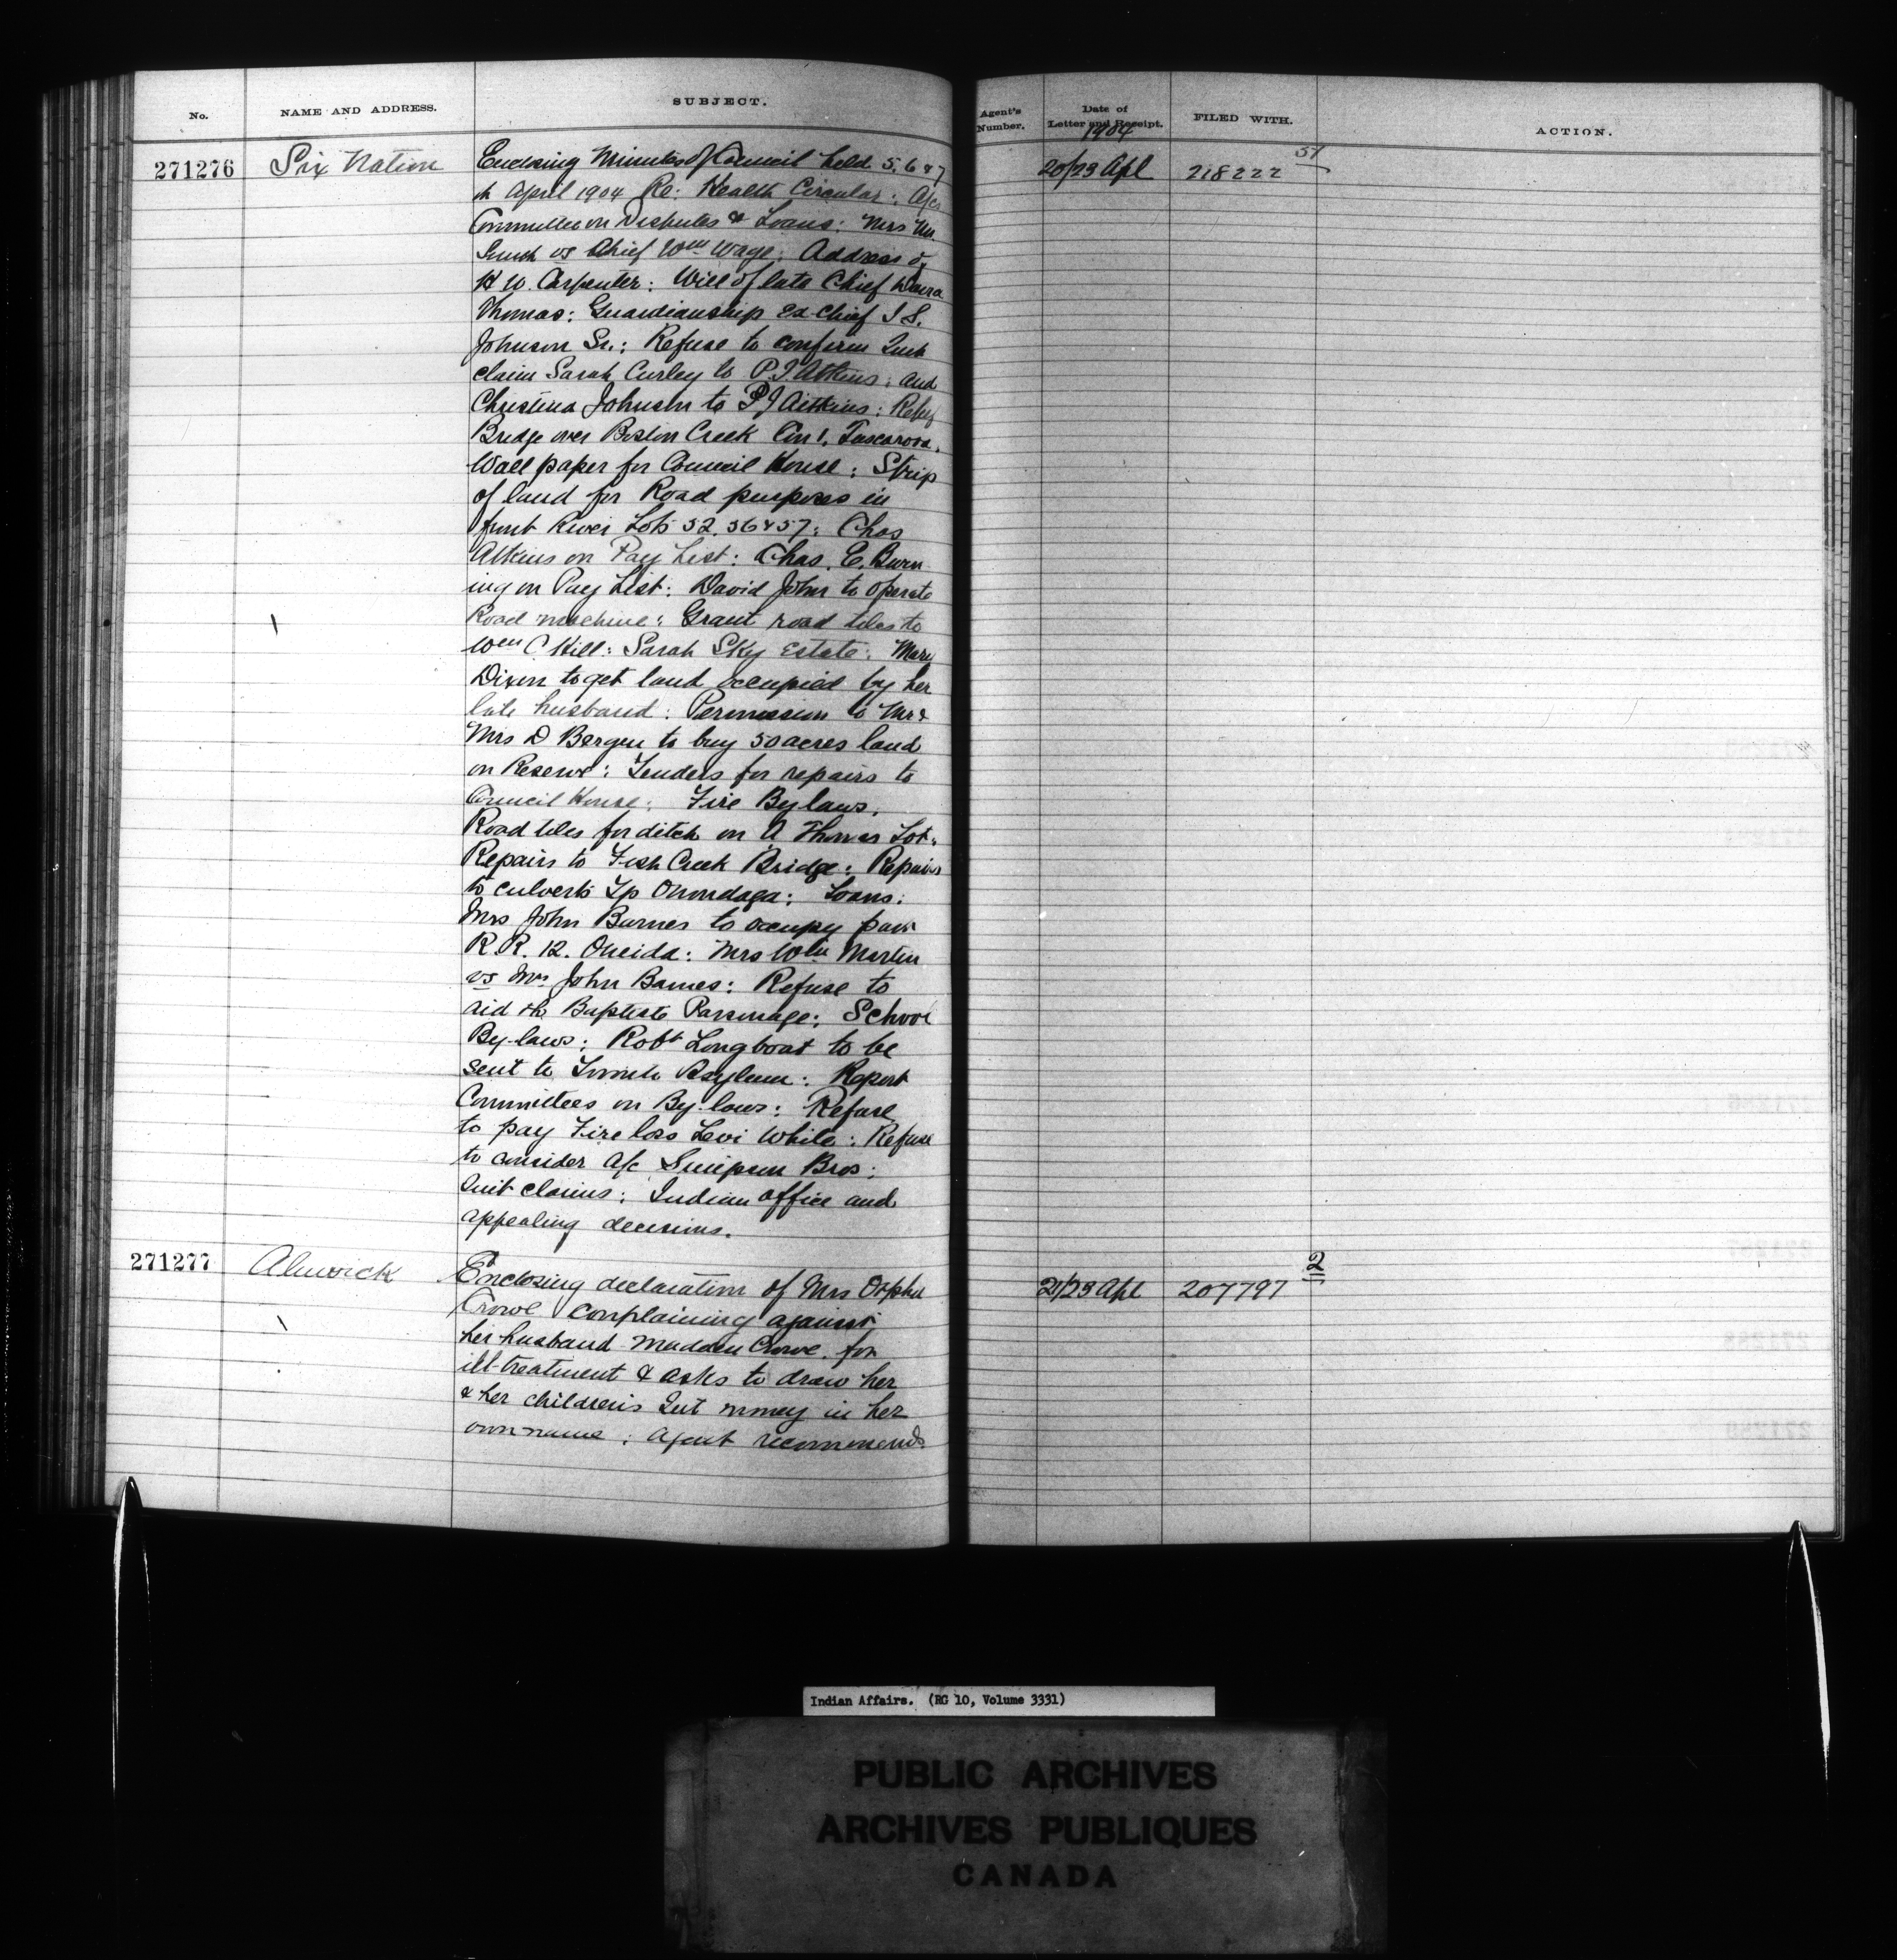 No. NAME AND ADDRESS. SUBJECT. Agent's Number. Date of Letter and Receipt. FILED WITH. ACTION.
1904
271276 Six Nation Enclosing Minutes of Council held 5, 6 & 7 20/23 Apl 218222 51
th April 1904 Re: Health Circular: A/cs
Committee on Disputes & Loans: Mrs Wm
Smith vs Chief Wm Wage: Address of
H W. Carpenter: Will of late Chief David
Thomas: Guardianship Ex-Chief J S.
Johnson Sr.: Refuse to confirm Quit
claim Sarah Curley to P. J. Atkins: and
Christina Johnson to P J Aitkins: Refuse
Bridge over Boston Creek Con 1, Tuscarora.
Wall paper for Council House: Strip
of land for Road purposes in
front River Lots 52. 56 & 57: Chas
Atkins on Pay List: Chas. E. Burn
ing on Pay List: David John to operate
Road machine: Grant road tiles to
Wm C Hill: Sarah Sky Estate: Mary
Dixon to get land occupied by her
late husband: Permission to Mr &
Mrs D Bergen to buy 50 acres land
on Reserve: Tenders for repairs to
Council House: Fire By laws.
Road tiles for ditch on A Thomas Lot:
Repairs to Fish Creek Bridge: Repairs
to culverts Tp Onondaga: Loans:
Mrs John Barnes to occupy part
R. R. 12. Oneida: Mrs Wm Martin
vs Mrs John Barnes: Refuse to
aid the Baptists Parsonage: School
By-laws: Robt Longboat to be
sent to Asylum: Report
Committees on By-laws: Refuse
to pay Fire loss Levi White: Refuse
to consider a/c Simpson Bros:
Quit claims: Indian office and
appealing decisions.
271277 Alnwick Enclosing declaration of Mrs Orpha 21/23 Apl 207797 2
Crowe complaining against
her husband Madden Crowe. for
ill-treatment & asks to draw her
& her children's Int money in her
own name: Agent recommends
Indian Affairs. (RG 10, Volume 3331)
PUBLIC ARCHIVES
ARCHIVES PUBLIQUES
CANADA